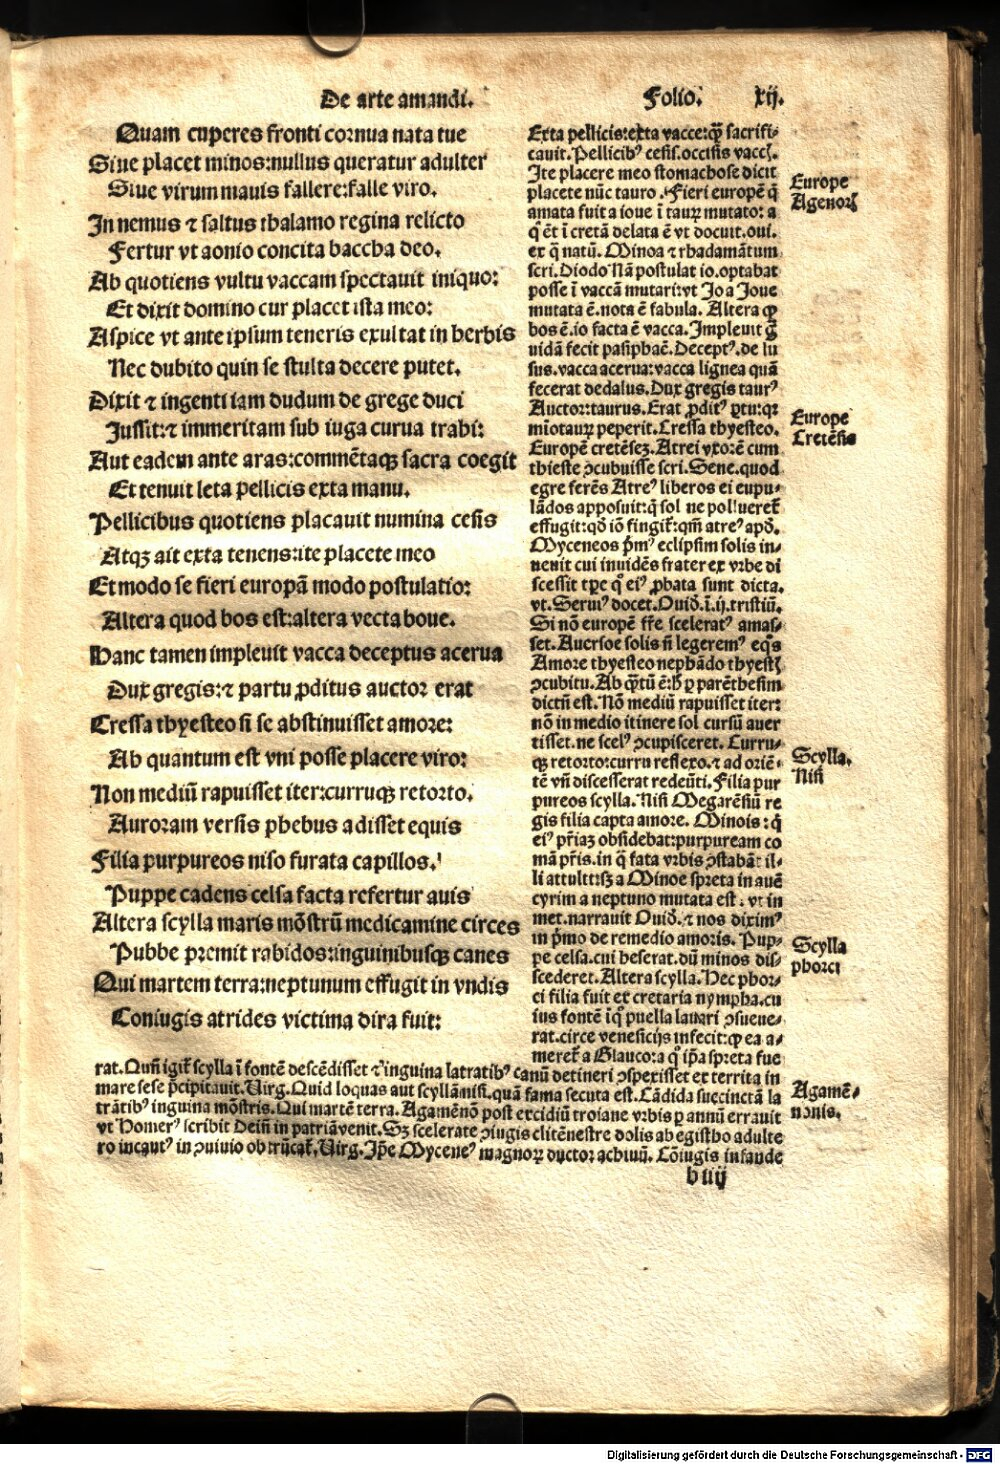 De arte amandi. Folio. xij.
Quam cuperes fronti cornua nata tue
Siue placet minos:nullus queratur adulter
Siue virum mauis fallere:falle viro.
In nemus ⁊ saltus thalamo regina relicto
Fertur vt aonio concita baccha deo.
Ab quotiens vultu vaccam spectauit iniquo:
Et dixit domino cur placet ista meo:
Aspice vt ante ipsum teneris exultat in herbis
Nec dubito quin se stulta decere putet.
Dixit ⁊ ingenti iam dudum de grege duci
Jussit:⁊ immeritam sub iuga curua trabi:
Aut eadem ante aras:commētaqꝫ sacra coegit
Et tenuit leta pellicis exta manu.
Pellicibus quotiens placauit numina cesis
Atqꝫ ait exta tenens:ite placete meo
Et modo se fieri europā modo postulatio:
Altera quod bos est:altera vecta boue.
Hanc tamen impleuit vacca deceptus acerua
Dux gregis:⁊ partu ꝓditus auctor erat
Cressa thyesteo si se abstinuisset amore:
Ab quantum est vni posse placere viro:
Non mediū rapuisset iter:curruqꝫ retorto.
Auroram versis phebus adisset equis
Filia purpureos niso furata capillos.
Puppe cadens celsa facta refertur auis
Altera scylla maris mōstrū medicamine circes
Pubbe premit rabidos:inguinibusqꝫ canes
Qui martem terra:neptunum effugit in vndis
Coniugis atrides victima dira fuit:
Exta pellicis:exta vacce:qꝫ sacrifi-
cauit. Pellicibꝰ cesis.occisis vaccꝭ.
Ite placere meo stomachose dicit
placete nūc tauro. Fieri europē q̄
amata fuit a ioue ī taurꝝ mutato: a
q̊ ēt ī cretā delata ē vt docuit.oui.
ex q̄ natū. Minoa ⁊ rhadamātum
scri. Diodo Nā postulat io.optabat
posse ī vaccā mutari:vt Jo a Joue
mutata ē.nota ē fabula. Altera ꝙ
bos ē.io facta ē vacca. Impleuit g̃
uidā fecit pasiphaē. Deceptꝰ.de lu
sus.vacca acerua:vacca lignea quā
fecerat dedalus. Dux gregis taurꝰ
Auctor:taurus. Erat ꝓditꝰ ꝑtu:qꝛ
miōtaurꝝ peperit. Cressa thyesteo.
Europē cretēseꝫ. Atrei vxorē cum
thieste ꝯcubuisse scri. Sene.quod
egre ferēs Atreꝰ liberos ei eupu-
lādos apposuit:q̄ sol ne polluereť
effugit:qđ iō fingiť:qm̄ atreꝰ apđ.
Myceneos p̄mꝰ eclipsim solis in-
uenit cui inuidēs frater ex vrbe di
scessit tꝑe q̊ eiꝰ ꝓbata sunt dicta.
vt. Seruiꝰ docet. Ouid̄.ī.ij.tristiū.
Si nō europē ff̄e sceleratꝰ amas-
set. Auersoe solis n̄ legeremꝰ eq̊s
Amore thyesteo nephādo thyestꝭ
ꝯcubitu. Ab q̄tū ē:h̄ ꝑ parēthesim
dictū est. Nō mediū rapuisset iter:
nō in medio itinere sol cursū auer
tisset.ne scelꝰ ꝯcupisceret. Curru-
qꝫ retorto:curru reflexo.⁊ ad oriē-
tē vn̄ discesserat redeūti. Filia pur
pureos scylla. Nisi Megarēsiū re
gis filia capta amore. Minois: q̄
eiꝰ p̄riaꝫ obsidebat:purpuream co
mā pr̄is.in q̄ fata vrbis ꝯstabāt il-
li attulit:sꝫ a Minoe spreta in auē
cyrim a neptuno mutata est. vt in
met.narrauit Ouid̄.⁊ nos diximꝰ
in p̄mo de remedio amoris. Pup-
pe celsa.cui heserat.dū minos dis-
scederet. Altera scylla. Hec phor-
ci filia fuit et cretaria nympha.cu
ius fontē īq̊ puella lauari ꝯsueue-
rat.circe veneficijs infecit:ꝙ ea a-
mereť a Glauco:a q̊ ip̄a spreta fue
rat. Quū igiť scylla ī fontē descēdisset ⁊ inguina latratibꝰ canū detineri ꝯspexisset exterrita in
mare sese p̄cipitauit. Virg. Quid loquas aut scyllā nisi. quā fama secuta est. Cādida succinctā la
trātibꝰ inguina mōstris. Qui martē terra. Agamēnō post excidiū troiane vrbis ꝑ annū errauit
vt Homerꝰ scribit Dein̄ in patriā venit. Sꝫ scelerate ꝯiugis clitēnestre dolis ab egistho adulte
ro incautꝰ in ꝯuiuio obtrūcať. Virg. Ip̄e Myceneꝰ magnorꝝ ductor achiuū. Cōiugis infande
b iiij
Europe
Agenorꝭ
Europe
Cretēsis
Scylla.
Nisi
Scylla
phorci
Agamē-
nonis.
Digitalisierung gefördert durch die Deutsche Forschungsgemeinschaft - DFG